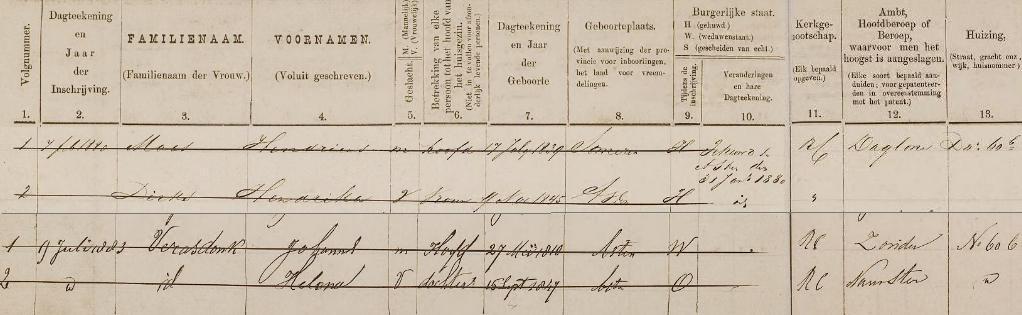 Volgnummer.
Dagteekening
en
Jaar
der
Inschrijving.
FAMILIENAAM.
(Familienaam der Vrouw.)
VOORNAMEN.
(Voluit geschreven.)
Geslacht. M. (Mannelijk) V. (Vrouwelijk)
Betrekking van elken persoon tot het hoofd van het huisgezin.
Dagteekening
en Jaar
der
Geboorte
Geboorteplaats.
(Met aanwijzing der pro-
vincie voor inboorlingen,
het land voor vreem-
delingen.
Burgerlijke staat.
H (gehuwd)
W. (weduwenstaat)
S (gescheiden van echt.)
Tijdens de inschrijving.
Veranderingen
en hare
Dagteekening.
Kerkge-
nootschap.
(Elk bepaald
opgeven.)
Ambt,
Hoofdberoep of
Beroep,
waarvoor men het
hoogst is aangeslagen.
(Elke soort bepaald aan-
duiden; voor gepatenteer-
den in overeenstemming
met het patent.)
Huizing,
(Straat, gracht enz,
wijk, huisnummer)
1. 2. 3. 4. 5. 6. 7. 8. 9. 10. 11. 12. 13.
1 7 1880 Maas Hendrikus m hoofd 17 July 1839 Someren H RC Dagloner 60b
2 Hendrika V vrouw 9 1845 H
1 9 Juli 1883 Verasdonk Johannes m Hoofd 27 1810 Asten W RC Zonder No 60 b
2 id Helena V dochter 15 Sept 1847 Asten O RC Naaister